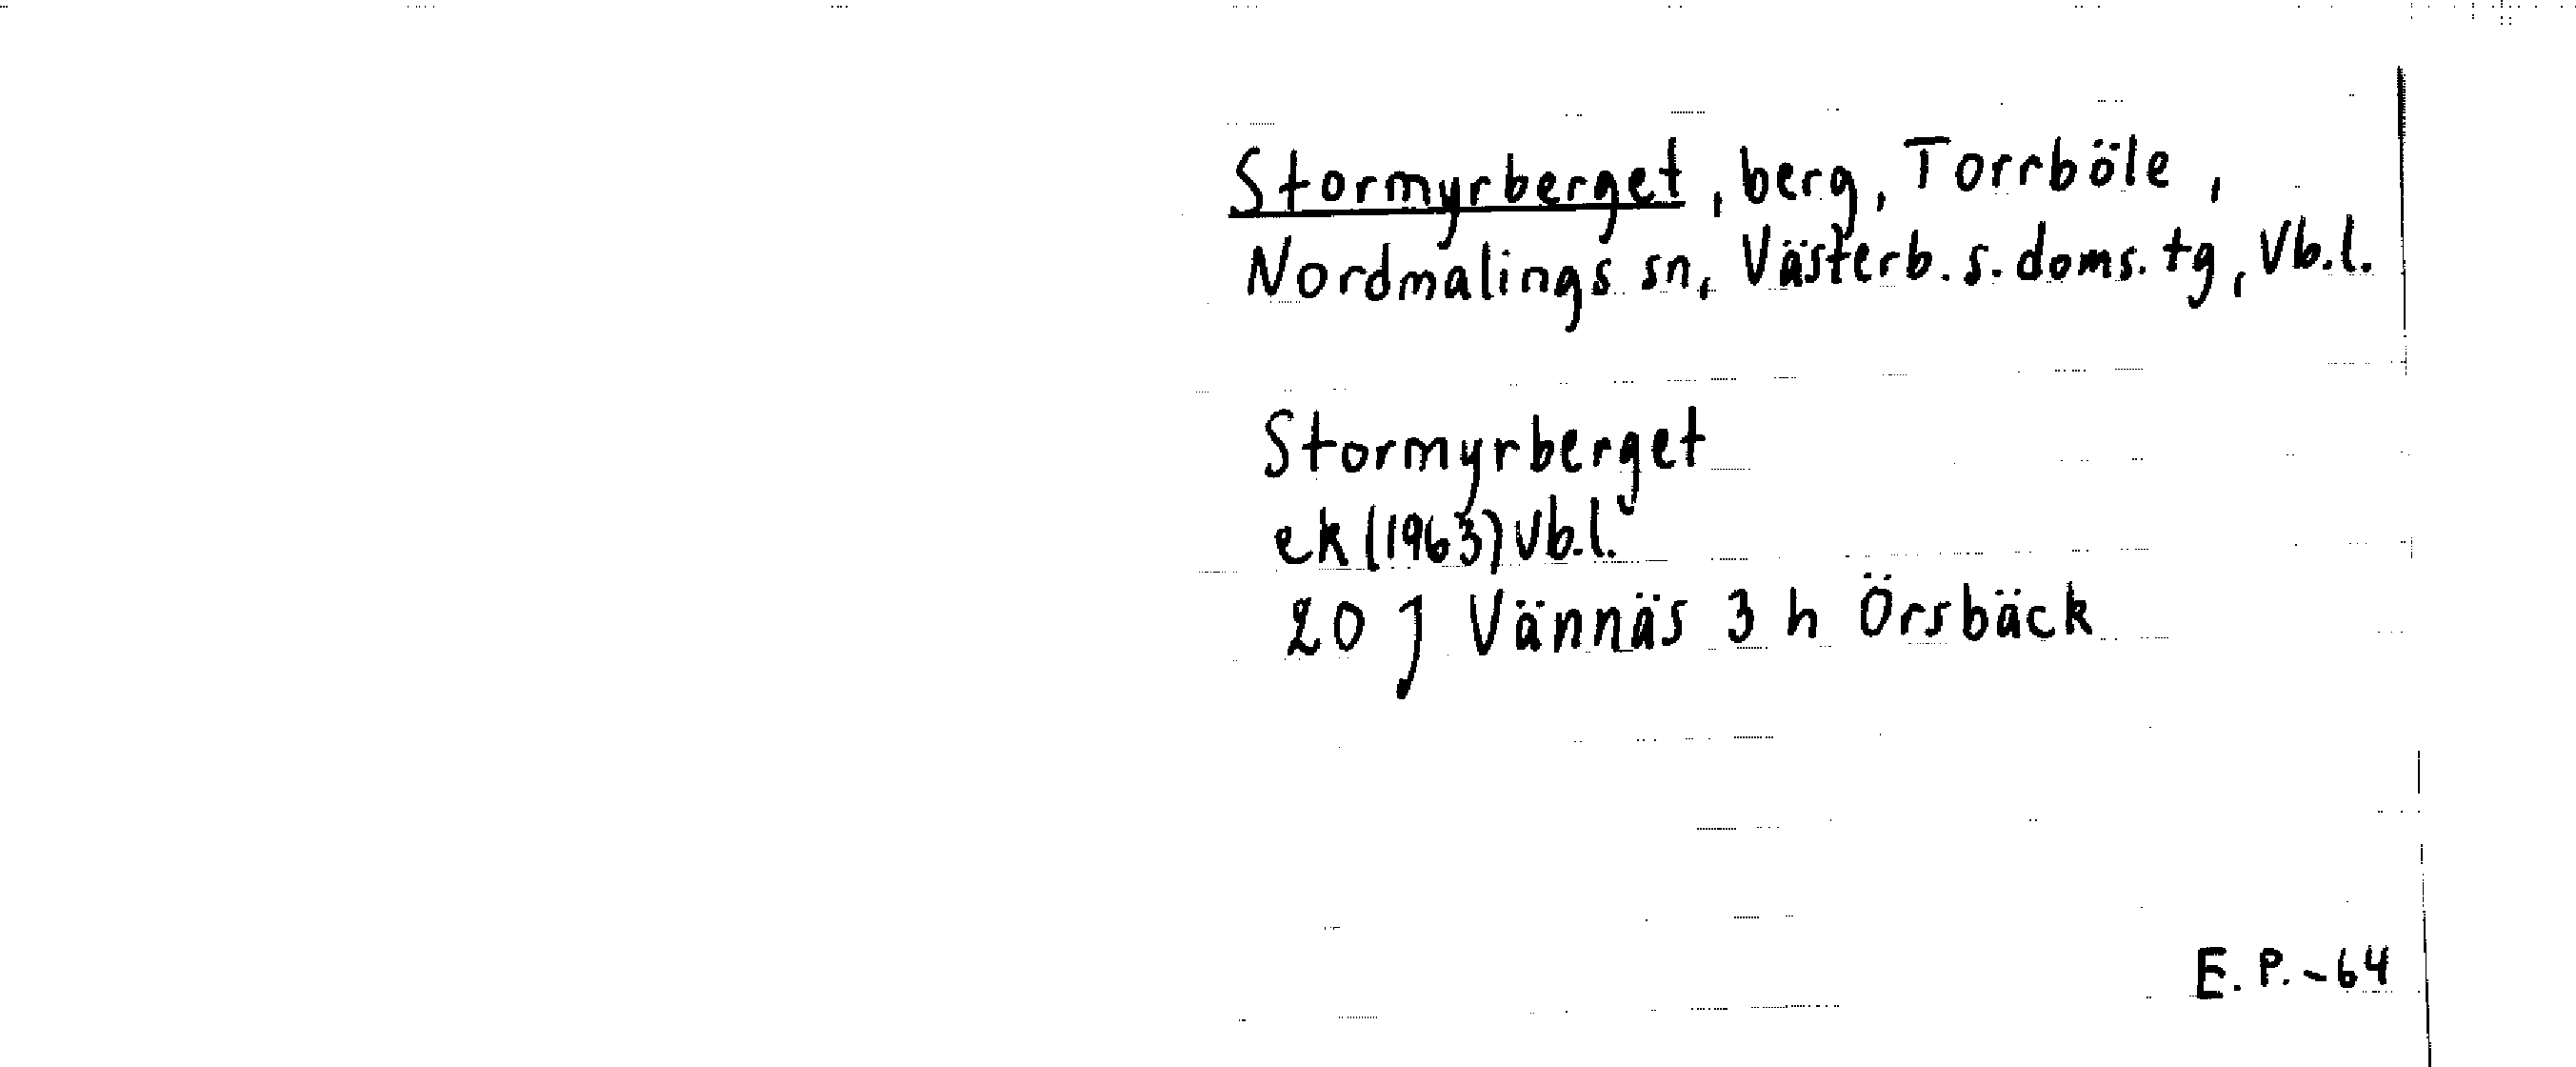 Stormyrberget, berg, Torrböle,
Nordmalings sn, Västerb. s. doms. tg, Vb.l.
Stormyrberget
ek (1963) Vb.l.
20 J Vännäs 3 h Örsbäck
E. P. -64